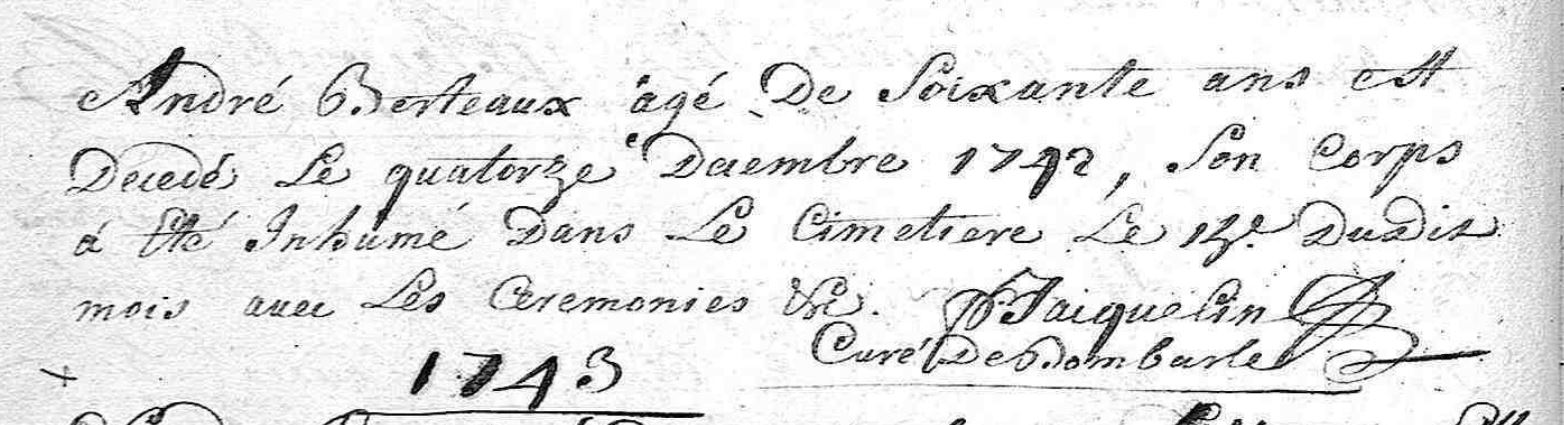 André Berteaux agé De Soixante ans est
Decedé Le quatorze Decembre 1742, Son Corps
á Eté Inhumé Dans Le Cimetiere Le 15e Dudit
mois avec Les Ceremonies &c. Jaiquelin
Curé De Dombasle
1743